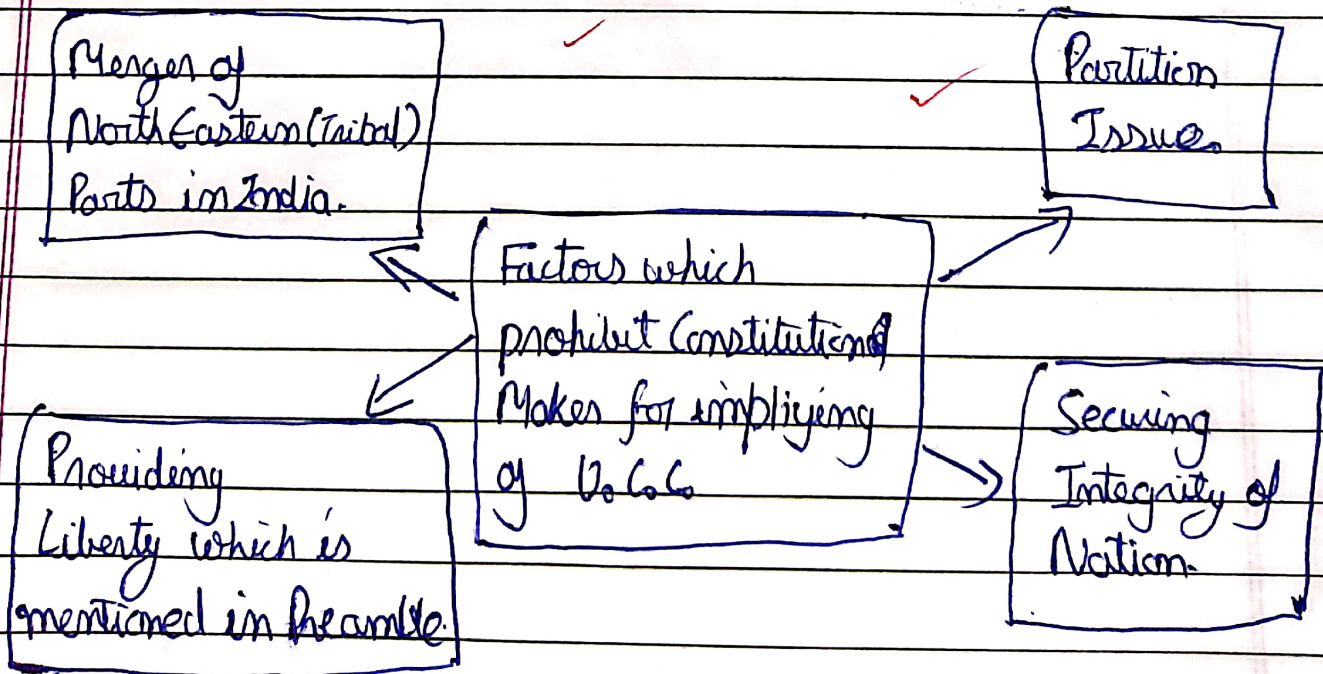 Merger of
North Eastern (Tribal)
Parts in India.
Partition
Issue.
Factors which
prohibit Constitution
Maker for impliying
of U.C.C.
Providing
Liberty which is
mentioned in Preamble.
Securing
Integrity of
Nation.